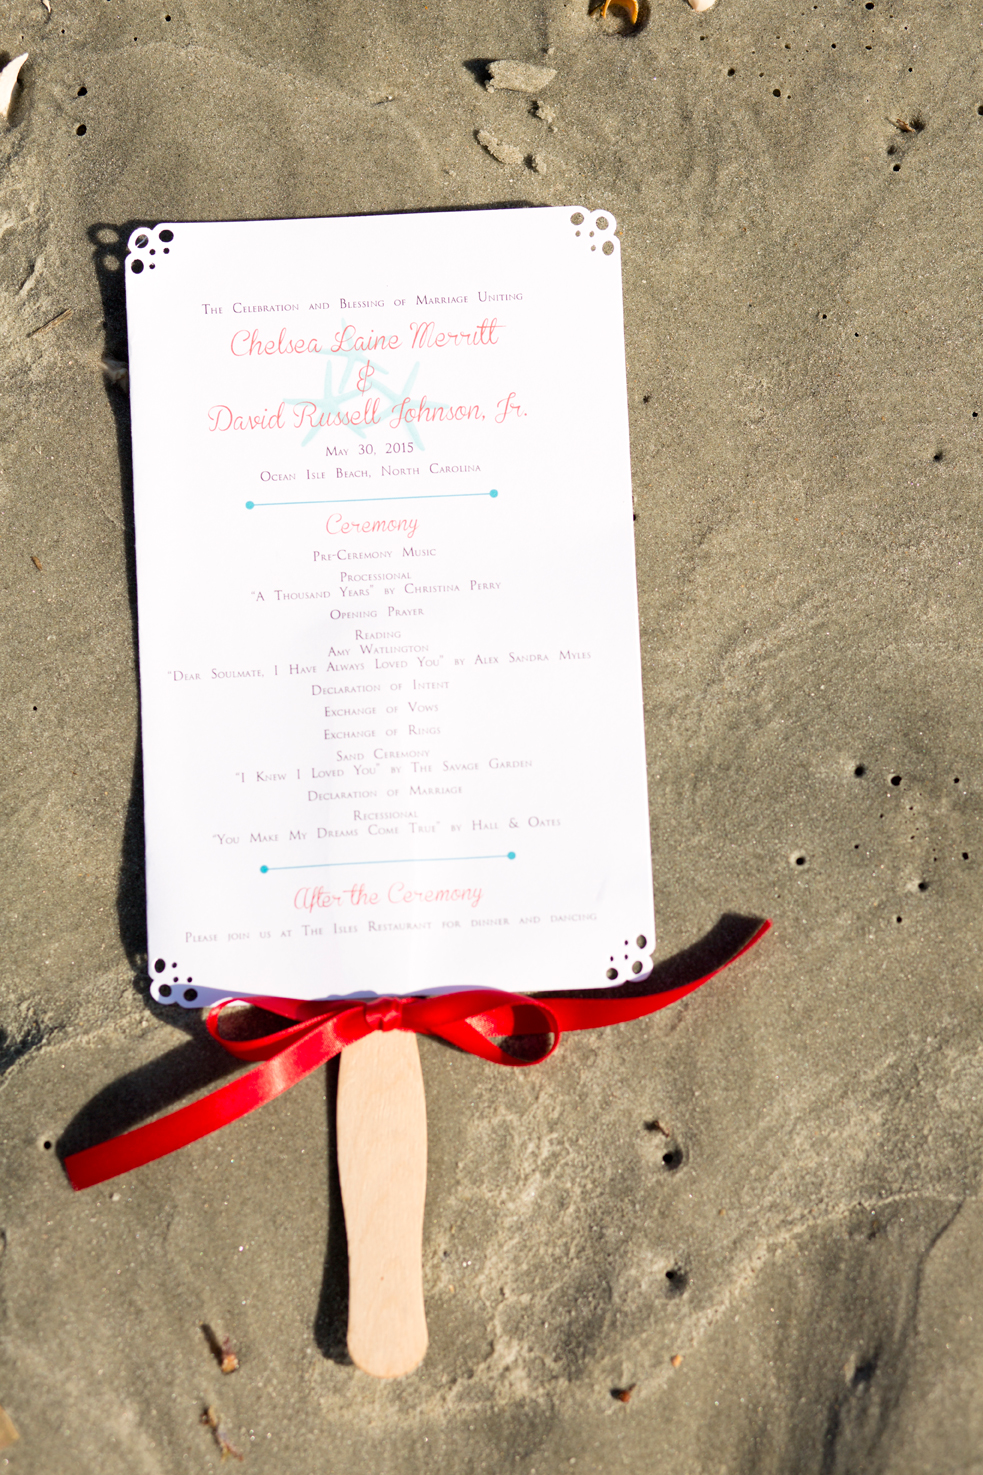 The Celebration and Blessing of Marriage Uniting
Chelsea Laine Merritt
&
David Russell Johnson, Jr.
May 30, 2015
Ocean Isle Beach, North Carolina
Ceremony
Pre-Ceremony Music
Processional
"A Thousand Years" by Christina Perry
Opening Prayer
Reading
Amy Watlington
"Dear Soulmate, I Have Always Loved You" by Alex Sandra Myles
Declaration of Intent
Exchange of Vows
Exchange of Rings
Sand Ceremony
"I Knew I Loved You" by The Savage Garden
Declaration of Marriage
Recessional
"You Make My Dreams Come True" by Hall & Oates
After the Ceremony
Please join us at The Isles Restaurant for dinner and dancing